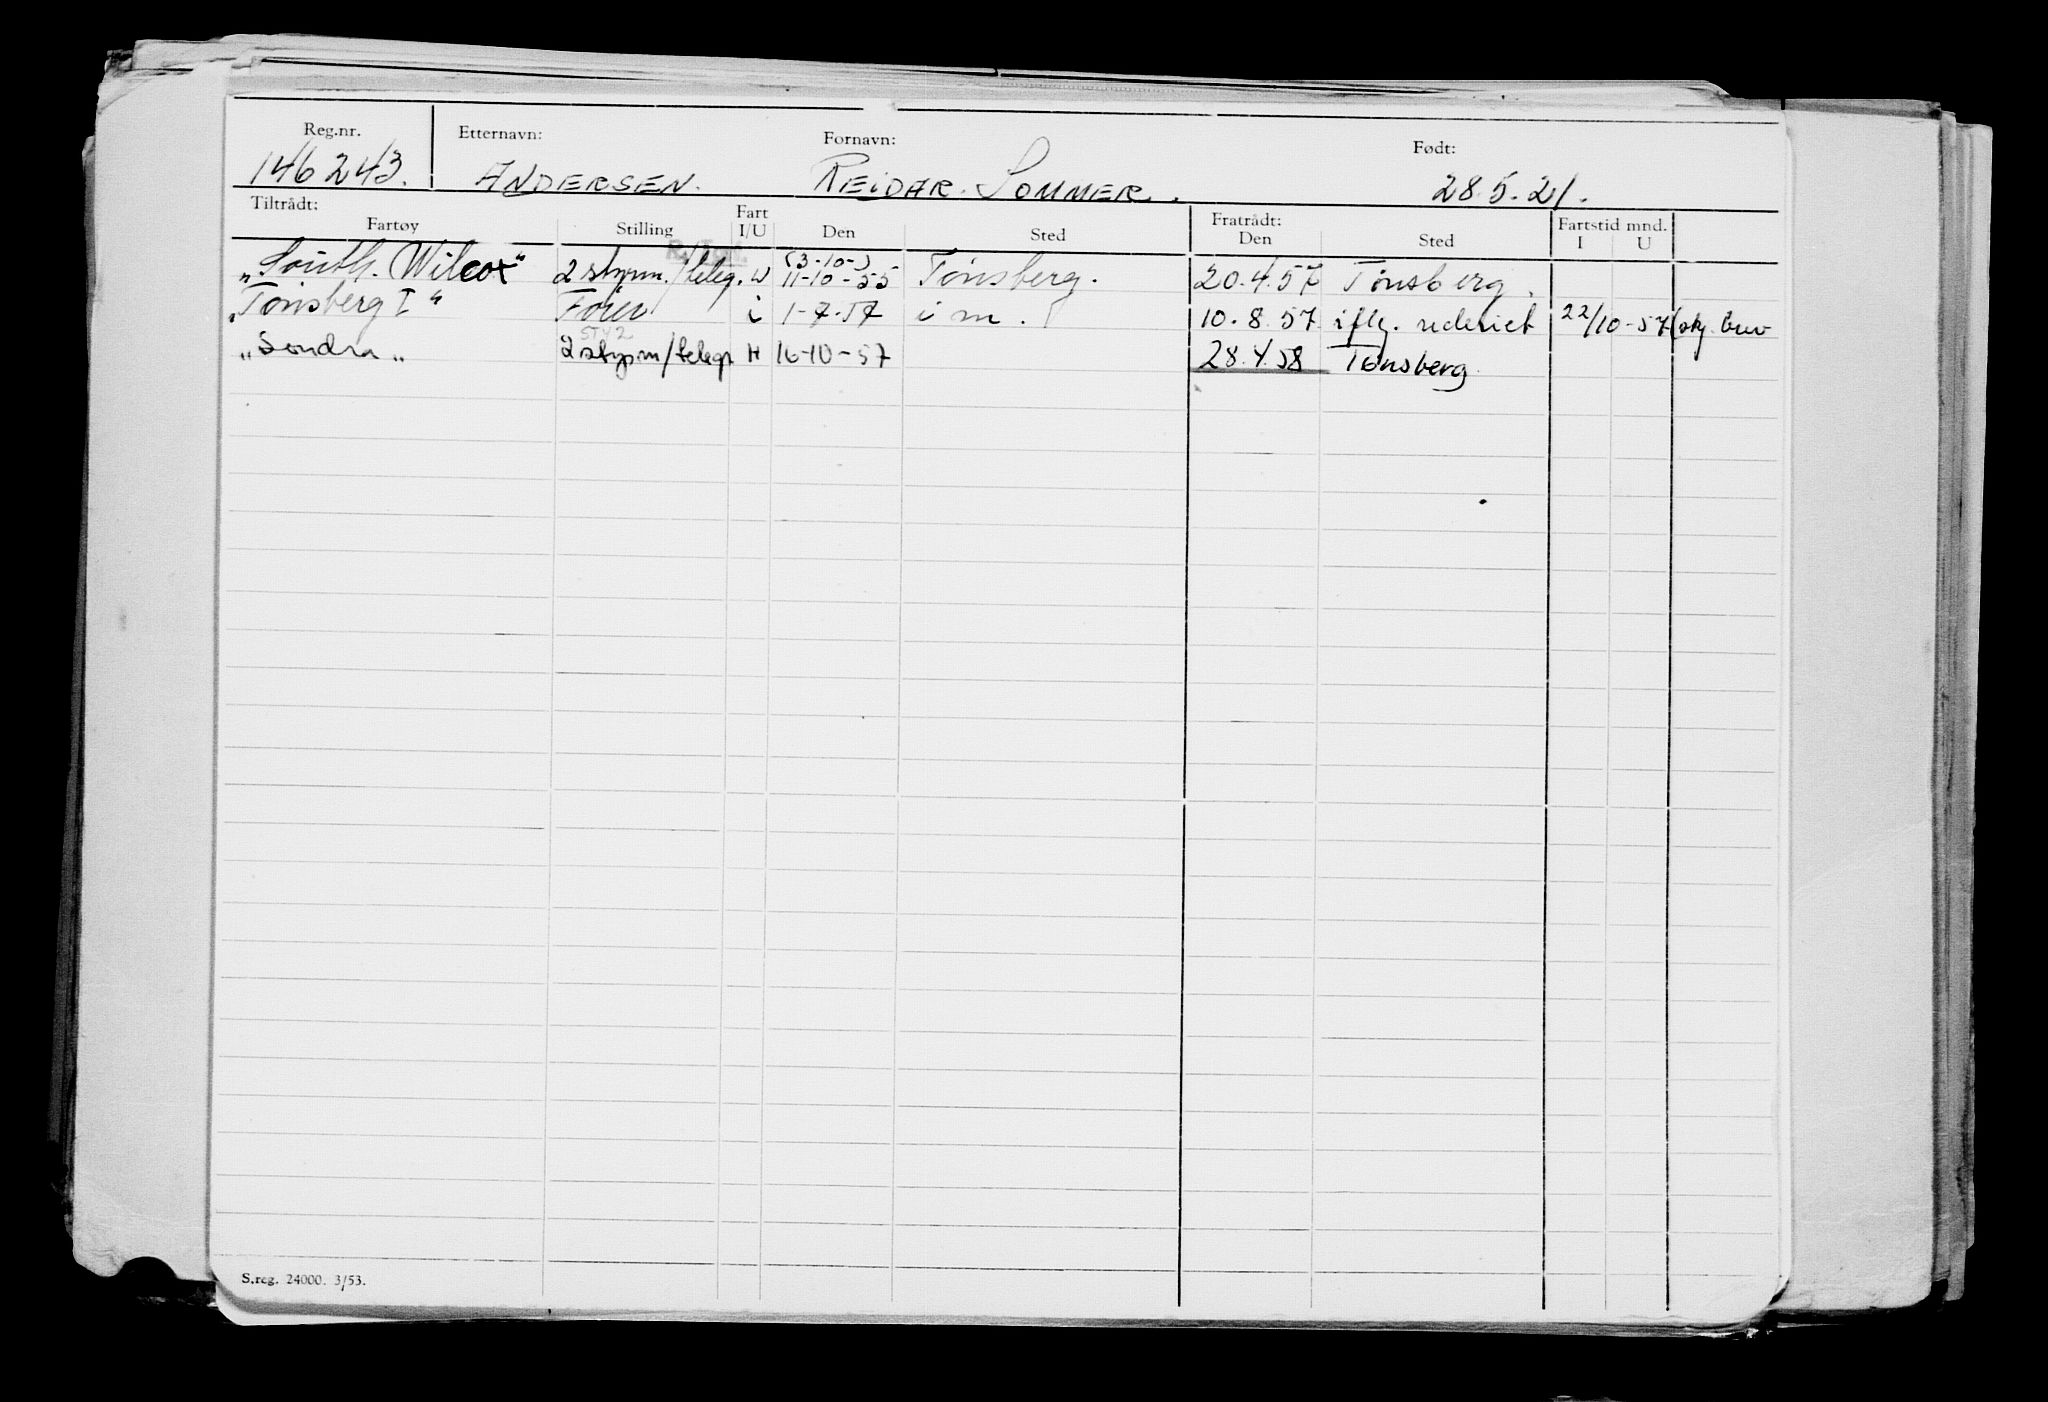 Reg.nr. Etternavn: Fornavn: Født:
146243. ANDERSEN. REIDAR. SOMMER. 28.5.21.
Tiltrådt: Fratrådt: Fartstid mnd.
Fartøy Stilling Fart I/U Den Sted Den Sted I U
(3-10-)
„South. Wilcox" 2 styrm./teleg. 11-10-55 Tønsberg. 20.4.57 Tønsberg.
„Tønsberg I" i 1-7-57 i m. 10.8.57 iflg. rederiet 22/10-57
STY2
„Sondra„ 2 styrm/telegr H 16-10-57 28.4.58 Tønsberg
S.reg. 24000. 3/53.